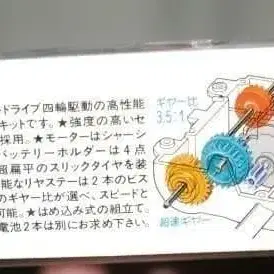 ードライブ四輪駆動の高性能
キットです。★強度の高いセ
採用。★モーターはシャーシ
バッテリーホルダーは4点
超扁平のスリックタイヤを装
能なリヤステーは2本のビス
のギヤー比が選べ、スピードと
可能。★はめ込み式の組立て。
電池2本は別にお求め下さい。
ギヤー比
3.5:1
超速ギヤー